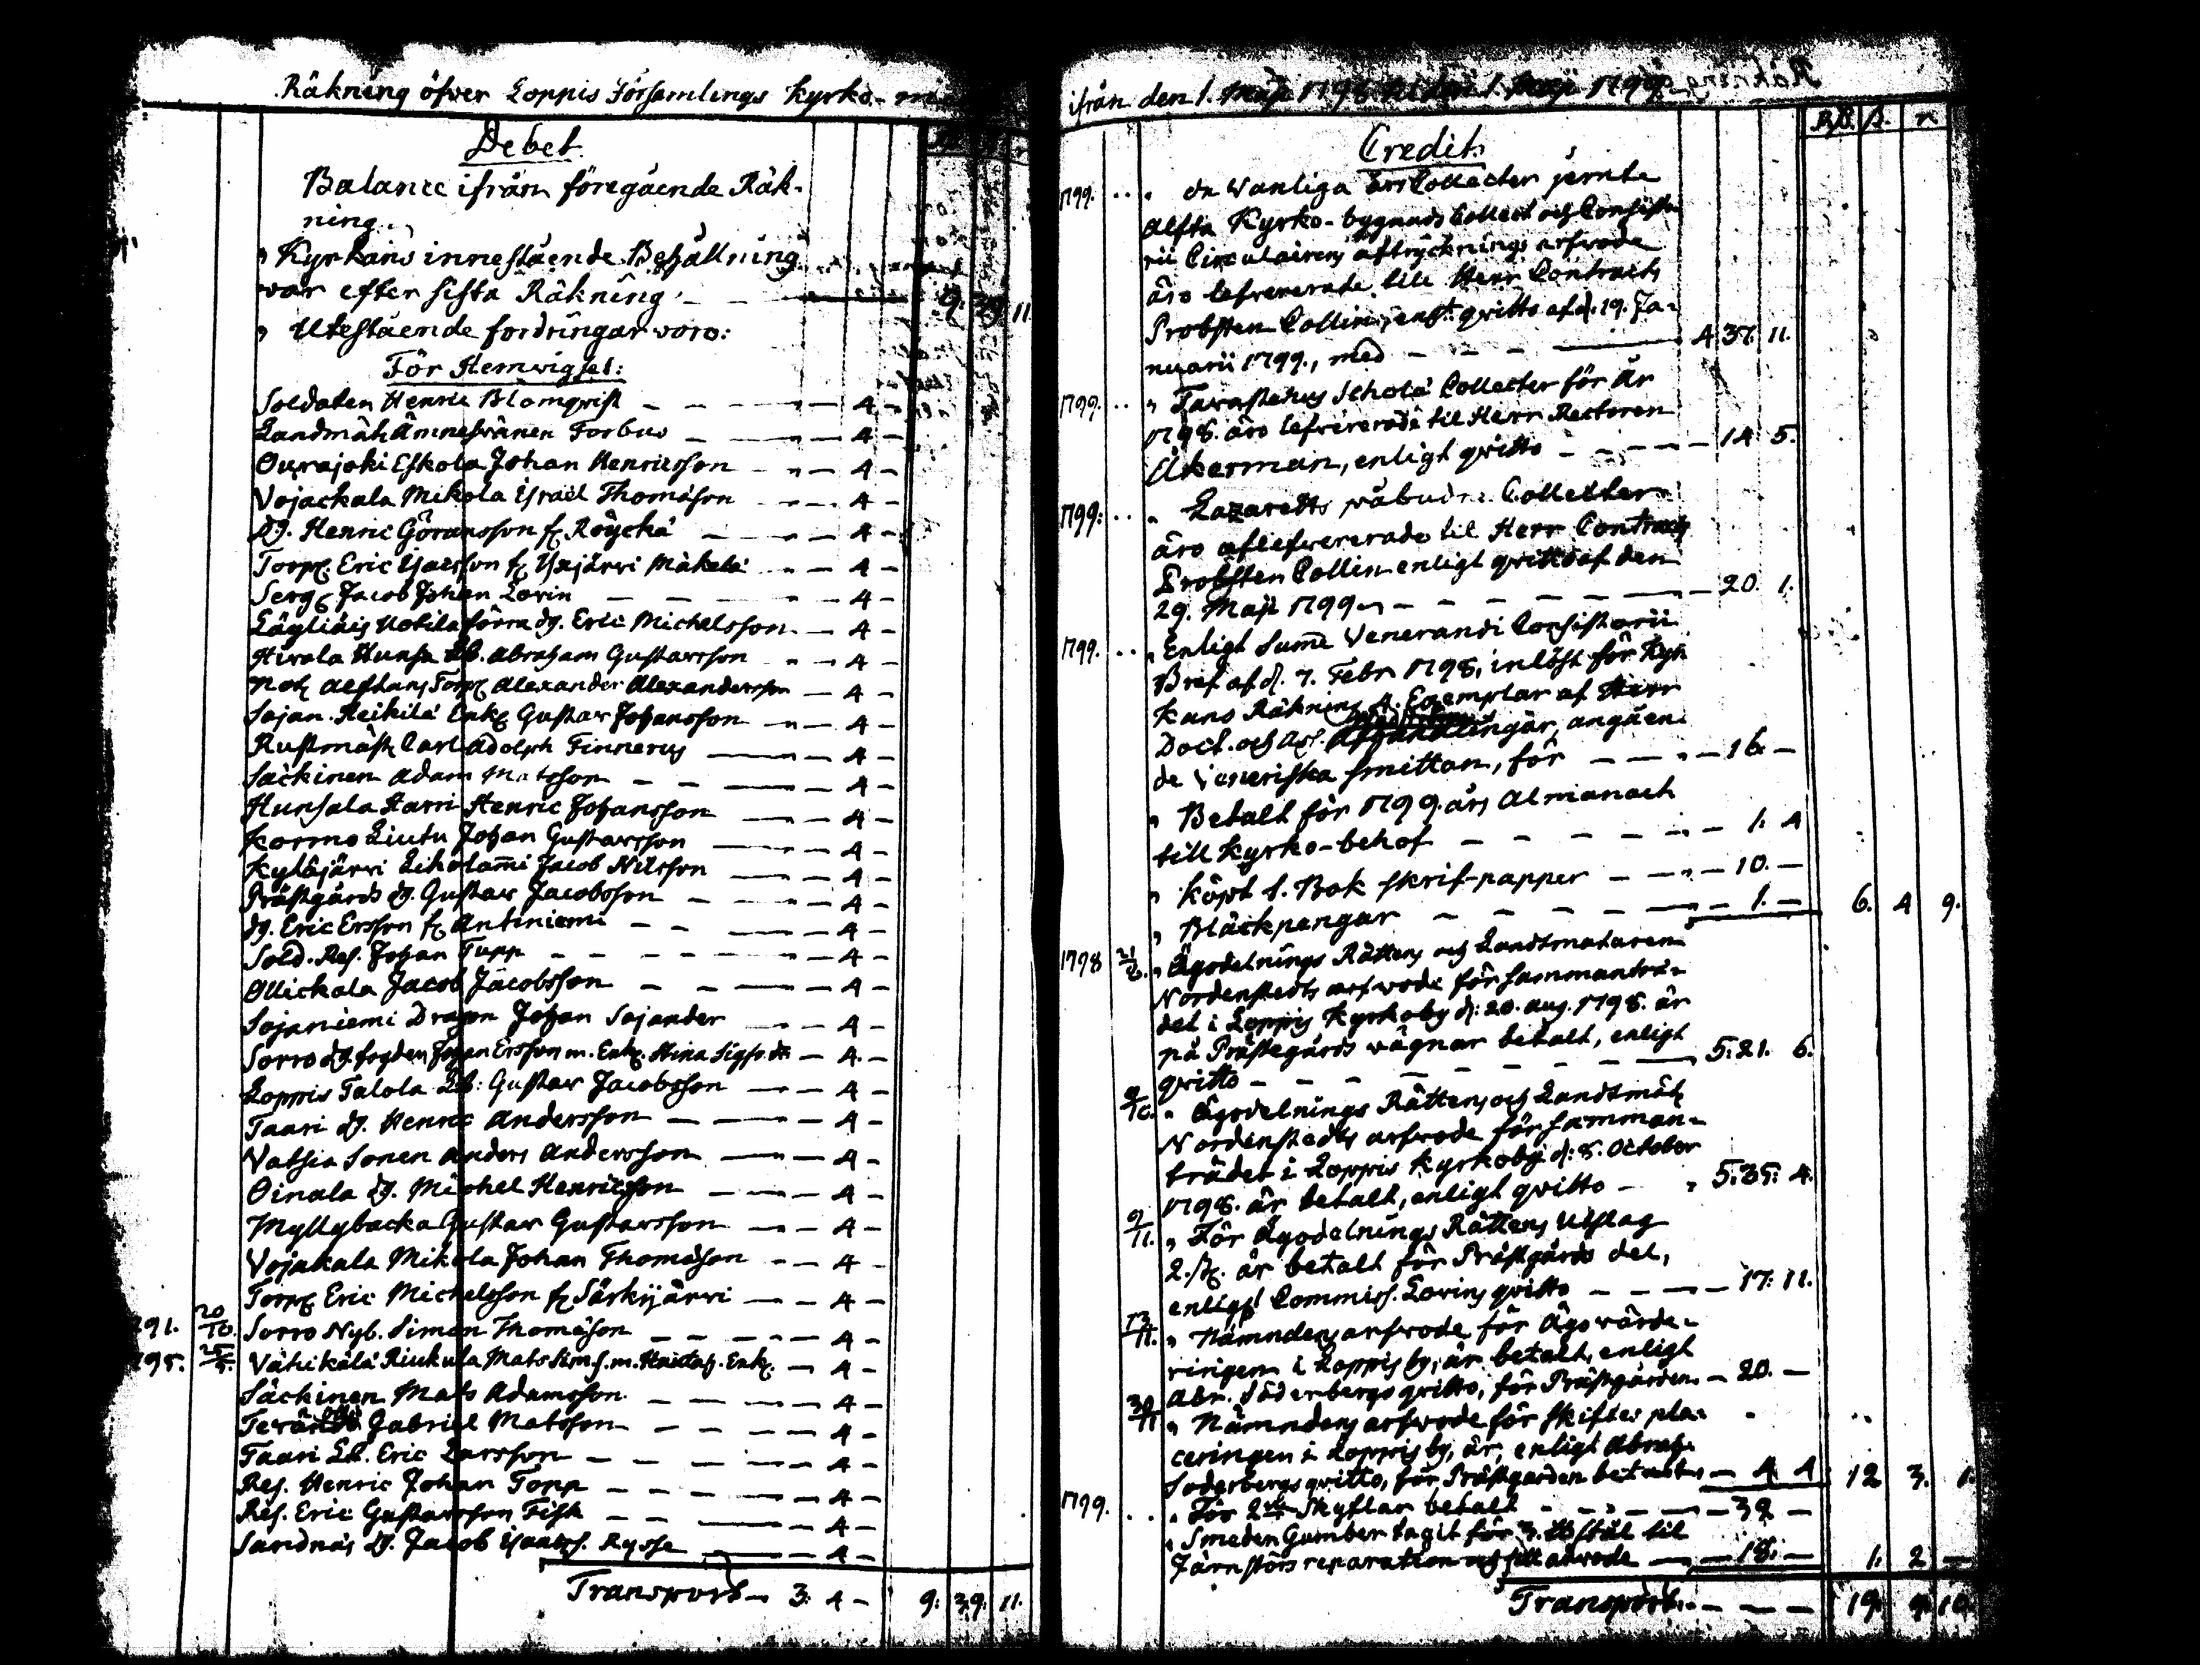 Räkning öfver Loppis Församlings Kyrko-
Debet.
Balance ifrån föregående Räk-
ning.
" Kyrkans innestående Behållning
var efter sista Räkning - - 9. 39 11
" Utestående fordringar voro:
För Hemvigsel:
Soldaten Henric Blomqvist - - 4 -
Landmät. Ämnesvänen Forbus - - 4 -
Ourajoki Eskola Johan Henricsson - - 4 -
Vojackala Mikola Israël Thomasson - - 4 -
dg. Henric Göransson f. Röyckä - - 4 -
Torp. Eric Isacsson f. Yxjärvi Mäkelä - - 4 -
Serg. Jacob Johan Lovin - - 4 -
Läyliäis Uotila förra dg. Eric Michelsson - 4 -
Hirvla Hunsa Lb. Abraham Gustavsson - - 4 -
Not. Alfthans Torp. Alexander Alexandersson - 4 -
Sajan. Heikilä Enk. Gustav Johansson - - 4 -
Rustmäst. Carl Adolph Finnerus - 4 -
Säckinen Adam Matsson - - 4 -
Hunsala Harri Henric Johansson - - 4 -
Kormo Liutu Johan Gustavsson - - 4 -
Kyläjärvi Liholammi Jacob Nilsson - - 4 -
Prästgårds dg. Gustav Jacobsson - - 4 -
dg. Eric Ersson f. Antiniemi - - 4 -
Sold. Res. Johan Tupp - - 4 -
Ollickala Jacob Jacobsson - - 4 -
Sajaniemi Dragon Johan Sajander - 4 -
Sorro dg. fogden Johan Ersson m. Enk. Stina Sigfr. dr - 4 -
Loppis Talola Lb: Gustav Jacobsson - - 4 -
Taari dg. Henric Andersson - - 4 -
Vatsia Sonen Anders Andersson - - 4 -
Oinala dg. Michel Henricsson - - 4 -
Myllybacka Gustav Gustavsson - - 4 -
Vojakala Mikola Johan Thomasson - - 4 -
Torp. Eric Michelsson f. Särkijärvi - - 4 -
91. 20/10. Sorro Nyb. Simon Thomasson - - 4 -
95. Vähikälä Riukula Mats Sims. m. Enk. - 4 -
Säckinen Mats Adamsson - - 4 -
Gabriel Matsson - - 4 -
Taari Lb. Eric Larsson - - 4 -
Res. Henric Johan Topp - - 4 -
Res. Eric Gustavsson Fisk - - 4 -
Sandnäs dg. Jacob Isaacs. Rysse - - 4 -
Transport - 3. 4 - 9. 39. 11.
ifrån den 1. Maji 1798. til den 1. Maji 1799.
Rd. s. r
Credit.
1799. . . " De vanliga års Collecter jemte
Alfta Kyrko-bygnads Collect och Consisto
rii Circulairens aftrycknings arfvode
äro lefvererade till Herr Contracts
Probsten Collin, enl. qvitto af d. 19. Ja-
nuarii 1799., med - - - 4 37. 11.
1799. . . " Tavastehus Schola Collecter för år
1798. äro lefvererade til Herr Rectoren
Åkerman, enligt qvitto - - - 14. 5.
1799. . . " Lazaretts påbudne Collecter
äro aflefvererade til Herr Contracts
Probsten Collin enligt qvitto af den
29. Maji 1799 - - - 20. 1.
1799. . . " Enligt Summe Venerandi Consistorii
Bref af d. 7. Febr 1798, inlöst för Kyr
kans Räkning 4. Exemplar af Herr
Doct. och angåen-
de Veneriska smittan, för - - - 16. -
" Betalt för 1799. års Almanach
till Kyrko-behof - - - 1. 4
" Köpt 1. Bok skrif-papper - - - 10. -
" Bläckpengar - - - 1. - 6. 4 9.
1798 " Ägodelnings Rättens och Landtmätaren
Nordenstedts arfvode för sammanträ-
det i Loppis Kyrkoby d: 20. Aug. 1798. är
på Prästegårds vägnar betalt, enligt
qvitto - - - 5. 21. 6.
" Ägodelnings Rättens och Landtmät.
Nordenstedts arfvode för samman-
trädet i Loppis Kyrkoby d: 8. October
1798. är betalt, enligt qvitto - 5. 35. 4.
9/11. " För Ägodelnings Rättens Utslag
2. st. är betalt för Prästgårds del,
enligt Commiss. Lovins qvitto - - - 17. 11.
13/11. " Nämndens arfvode för Ägovärde-
ringen i Loppis by, är betalt, enligt
Abr. Söderbergs qvitto, för Prästgården - 20. -
30/11 " Nämndens arfvode för skiftes pla-
ceringen i Loppis by, är, enligt Abrah.
Söderbergs qvitto, för Prästgården betalt - 4 4 12 3. 1.
1799. . . " För 2 Skyflar betalt - - - 32 -
" Smeden Gumber tagit för 3. stål til
Järnstörs reparation och arvode - 18. - 1. 2 -
Transport - - - 19. 9. 10.